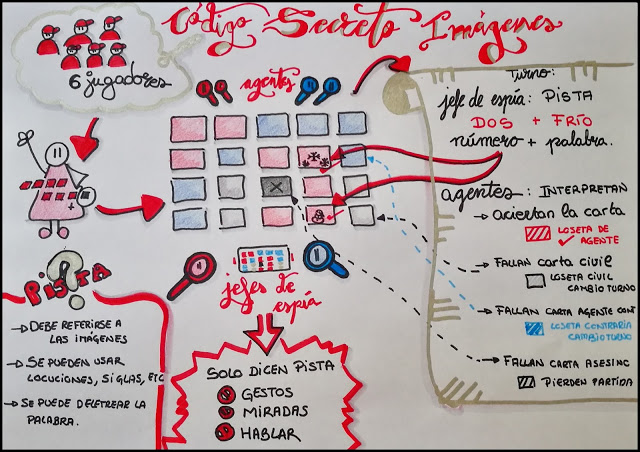 Código Secreto Imágenes
6 jugadores
agentes
jefes de espía
PISTA
→ DEBE REFERIRSE A
LAS IMÁGENES
→ SE PUEDEN USAR
LOCUCIONES, SIGLAS, ETC
→ SE PUEDE DELETREAR LA
PALABRA.
SOLO DICEN PISTA
GESTOS
MIRADAS
HABLAR
TURNO:
jefe de espía: PISTA
DOS + FRÍO
número + palabra.
agentes: INTERPRETAN
→ aciertan la carta
LOSETA DE
AGENTE
→ FALLAN carta civil
LOSETA CIVIL
CAMBIO TURNO
→ FALLAN CARTA AGENTE CONT
LOSETA CONTRARIA
CAMBIO TURNO
→ FALLAN CARTA ASESINO
PIERDEN PARTIDA